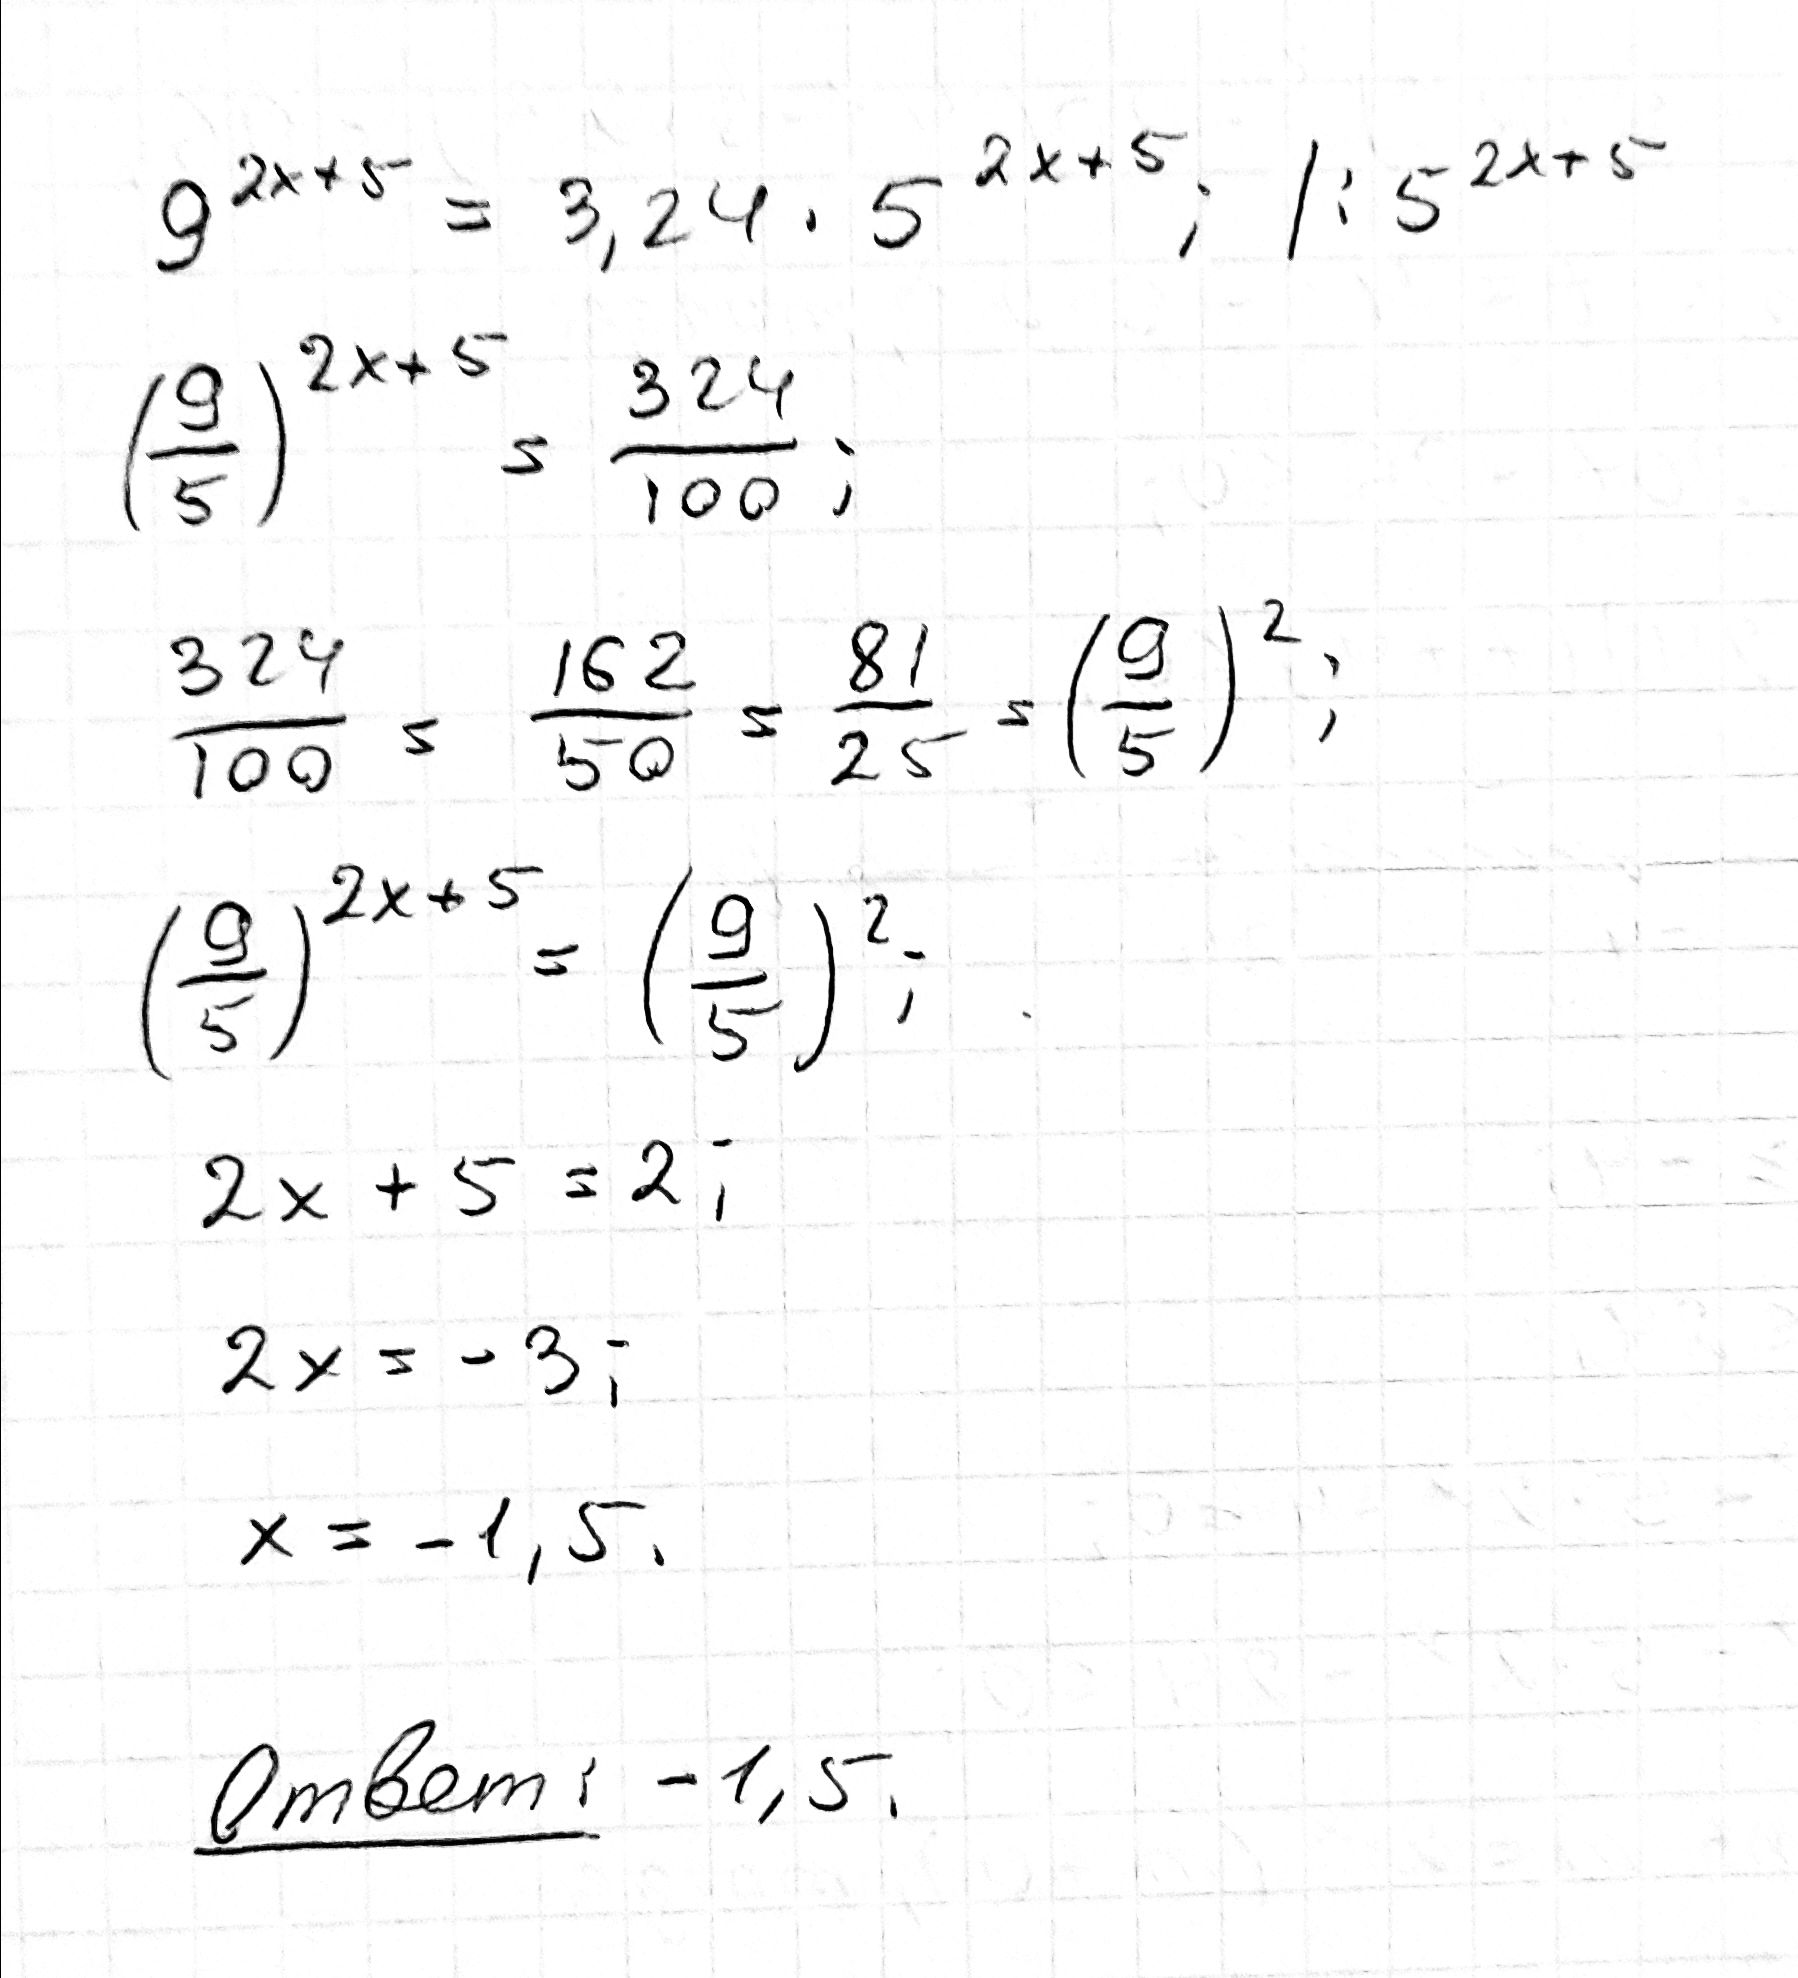 9^{2x+5} = 3,24 · 5^{2x+5}; /: 5^{2x+5}
(9/5)^{2x+5} = 324/100;
324/100 = 162/50 = 81/25 = (9/5)^2;
(9/5)^{2x+5} = (9/5)^2;
2x + 5 = 2;
2x = -3;
x = -1,5.
Ответ: -1,5.